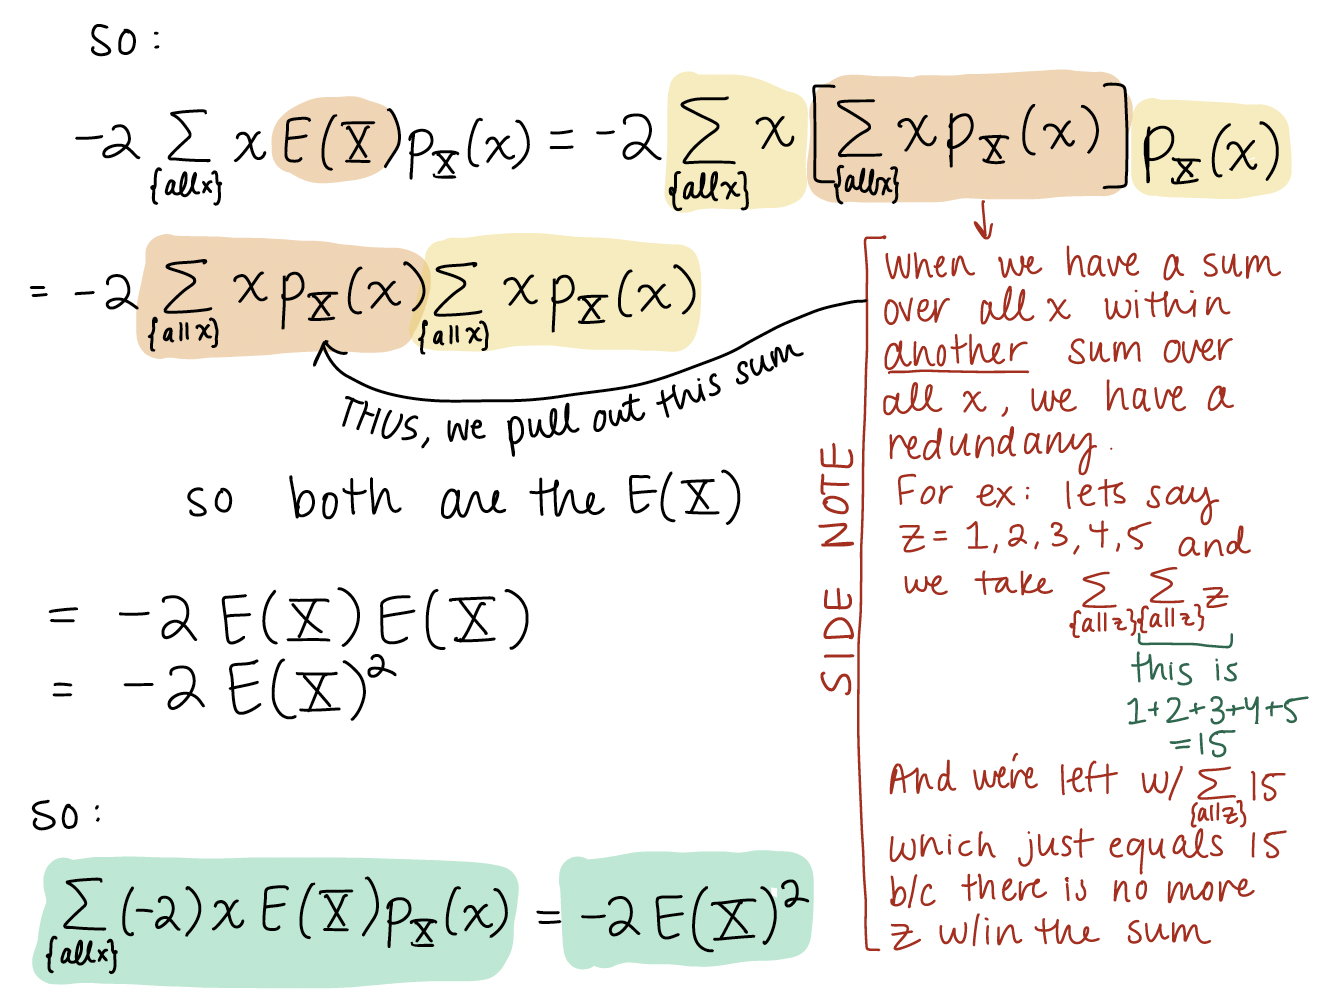 SO:
-2 ∑ x E(X) p_X(x) = -2 ∑ x [ ∑ x p_X(x) ] p_X(x)
{all x} {all x} {all x}
= -2 ∑ x p_X(x) ∑ x p_X(x)
{all x} {all x}
THUS, we pull out this sum
so both are the E(X)
= -2 E(X) E(X)
= -2 E(X)²
SO:
∑ (-2) x E(X) p_X(x) = -2 E(X)²
{all x}
SIDE NOTE
When we have a sum
over all x within
another sum over
all x, we have a
redundany.
For ex: lets say
z = 1, 2, 3, 4, 5 and
we take ∑ ∑ z
{all z} {all z}
this is
1+2+3+4+5
=15
And we're left w/ ∑ 15
{all z}
which just equals 15
b/c there is no more
z w/in the sum